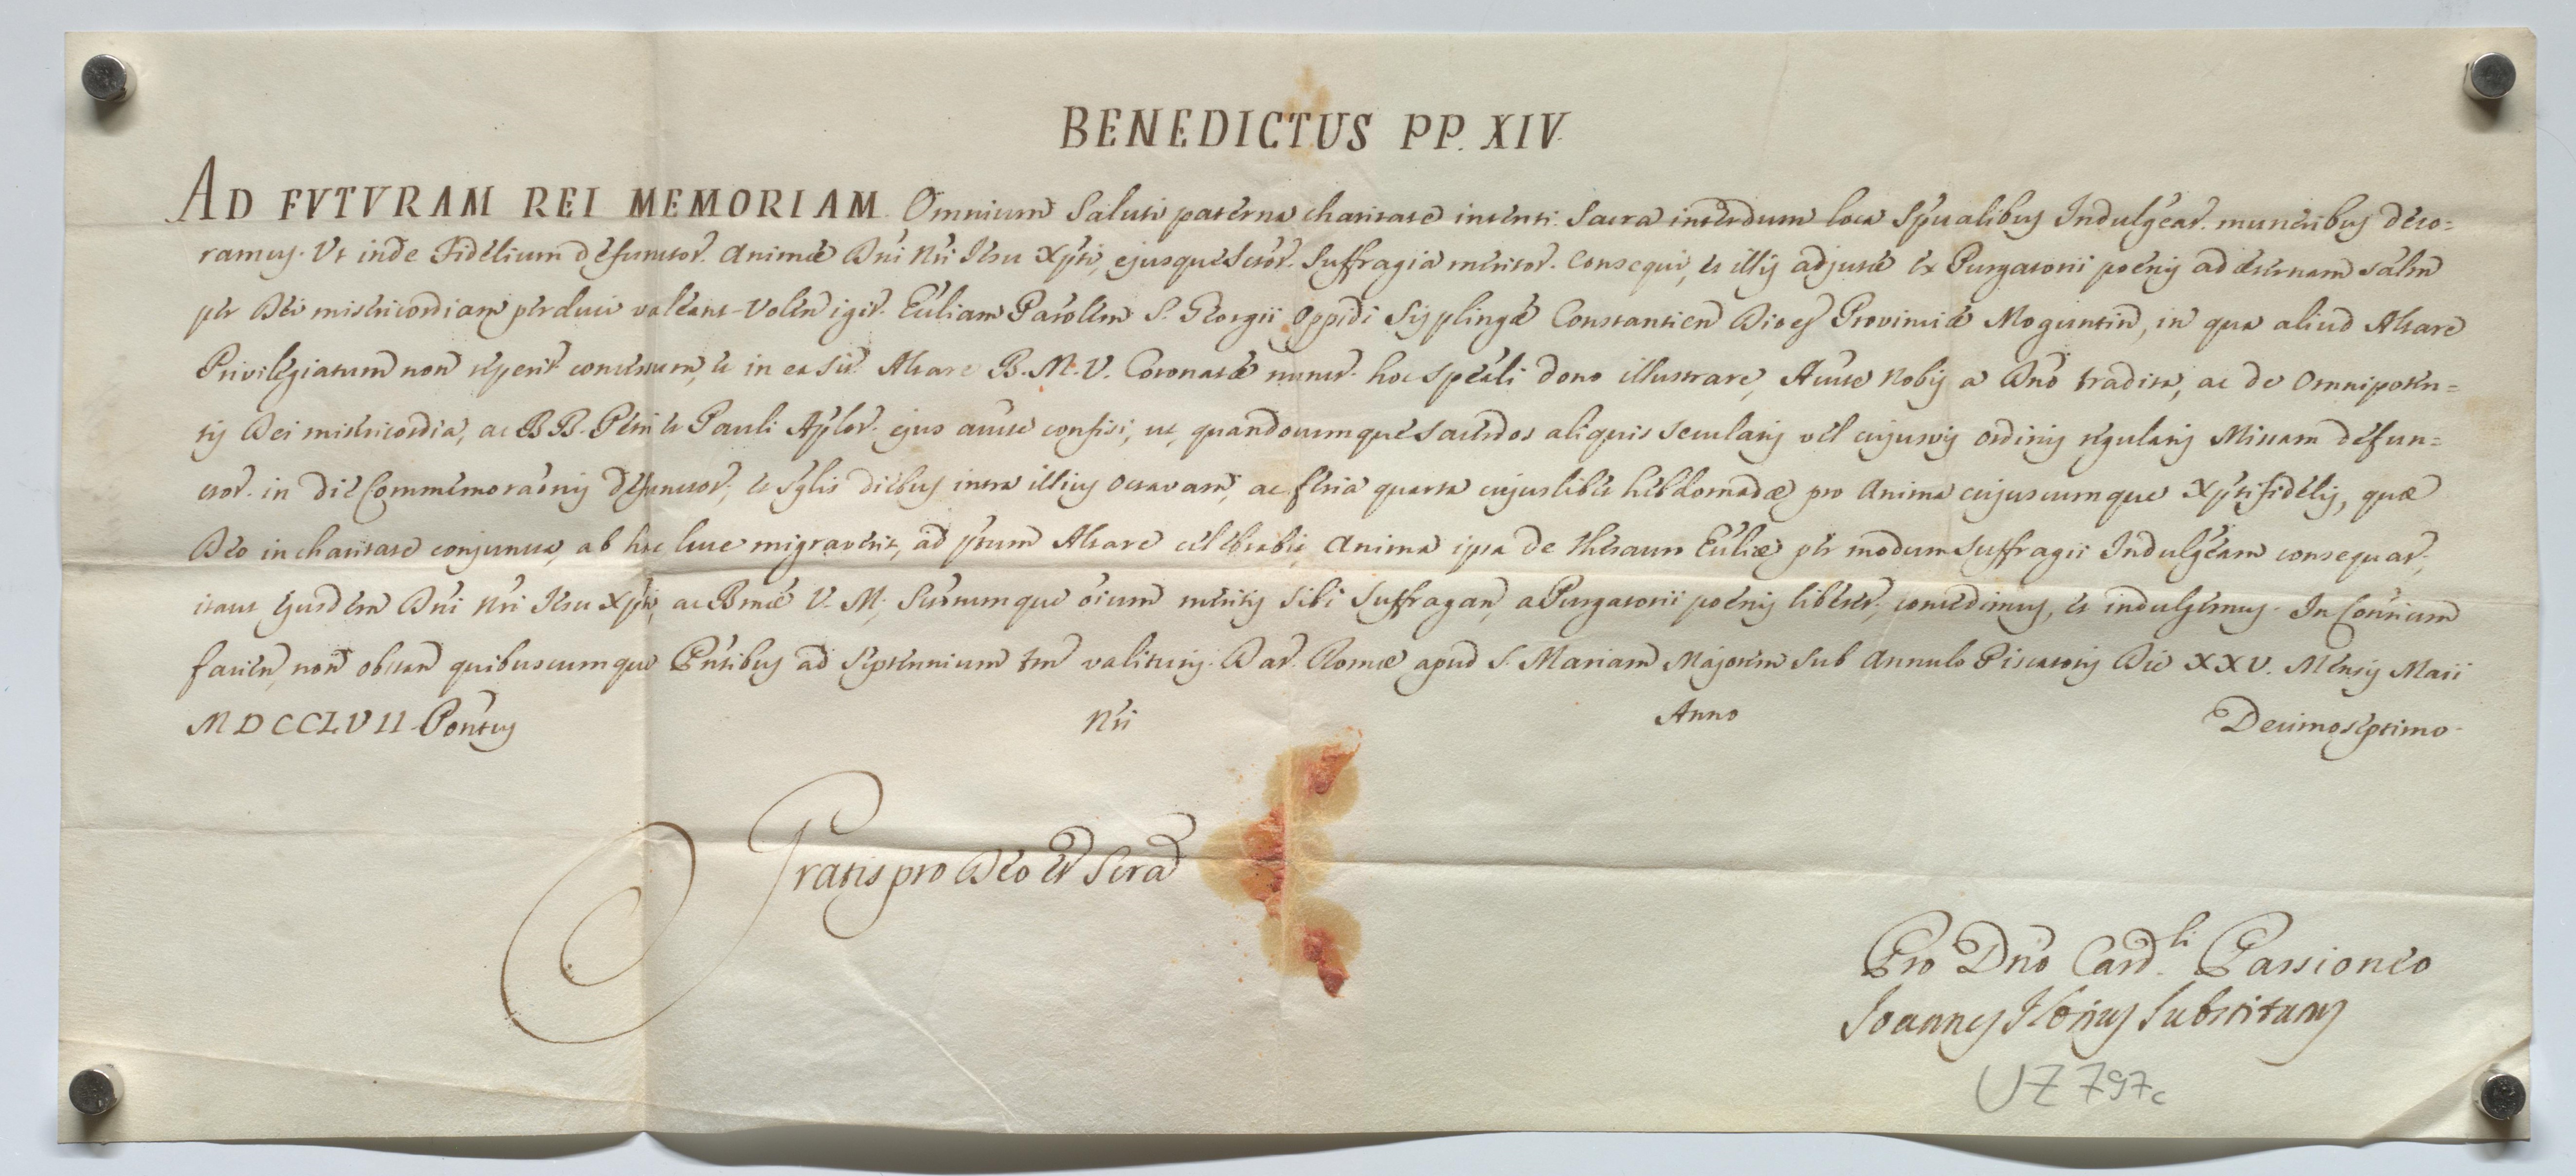 BENEDICTUS PP. XIV.
AD FVTVRAM REI MEMORIAM. Omnium Saluti paterna charitate intenti. Sacra interdum loca Sp̃ualibus Indulg̃èar. muneribus deco=
ramus. Ut inde Fidelium defunctor. Animæ Dñi Nr̃i Jesu Xp̃ti, ejusque Sctõr. Suffragia meritor. consequi, et illis adjutæ ex Purgatorii poenis ad æternam salm̃
per Dei misericordiam perduci valeant. Volen igit. Ecc̃liam Paroĉlem S. Georgii Oppidi Sypplingæ Constantien Dioeś Provinciæ Moguntin, in qua aliud Altare
Privilegiatum non reperit concessum, et in ea sit̃ Altare B. M. V. Coronatæ nuncr. hoc speãli dono illustrare, Aucte Nobis a Dñò tradita, ac de Omnipoten=
tis Dei misericordia, ac BB. Petri et Pauli Ap̃lor. ejus aucte confisi, ut, quandocumque Sacerdos aliquis Secularis vel cujusvis ordinis regularis Missam defun=
ctor. in die Commemoraõnis defunctor; et s̃glis diebus infra illius octavam, ac feria quarta cujuslibet hebdomadæ pro Anima cujuscumque Xp̃tifidelis, quæ
Deo in charitate conjuncta, ab hac luce migraverit, ad p̃tum Altare celebrabit, Anima ipsa de thesauro Ecc̃liæ per modum suffragii Indulg̃èam consequar,
itaut Ejusdem Dñi Nr̃i Jesu Xp̃ti, ac Bmæ V. M; Sctõrumque oĩum meritis sibi Suffragan, a Purgatorii poenis liberet, concedimus, et indulgemus. In Conr̃ium
facien, non obstan quibuscumque P̃ntibus ad Septennium tm̃ valituris. Dat. Romæ apud S. Mariam Majorem sub Annulo Piscatoris Die XXV. Mensis Maii
MDCCLVII. Pontŭs Nr̃i Anno Decimoseptimo.
Gratis pro Deo Et Scra
Pro Dñò Card.li Passioneo
Joannes Florius Substitutus
UZ 797c